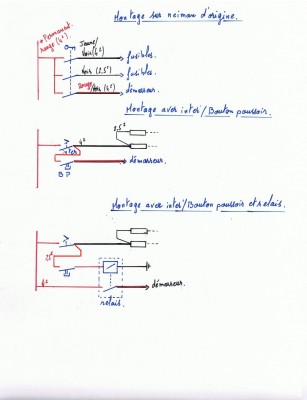 Montage sur neiman d'origine.
+ Permanent
rouge (4²)
Jaune/
Noir (4²)
fusibles.
Noir (2,5²)
fusibles.
Rouge/Noir (4²)
démarreur.
Montage avec inter/Bouton poussoir.
4²
2,5²
inter
démarreur.
BP
Montage avec inter/Bouton poussoir et relais.
4²
démarreur.
relais.